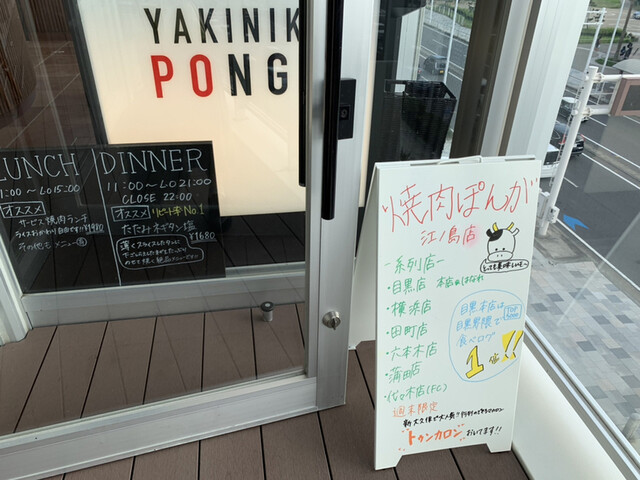 YAKINIK
PONG
LUNCH
DINNER
11:00〜LO 21:00
CLOSE 22:00
オススメ リピート率No.1
たたみネギタン塩
¥1680
:00〜LO15:00
オススメ
サービス焼肉ランチ
¥980
その他もメニュー有
焼肉ぽんが
江ノ島店
-系列店-
・目黒店 本店 はなれ
・横浜店
・田町店
・六本木店
・蒲田店
・代々木店(FC)
目黒本店は
目黒界隈で
食べログ
1位!!
週末限定
トゥンカロン あいてます!!